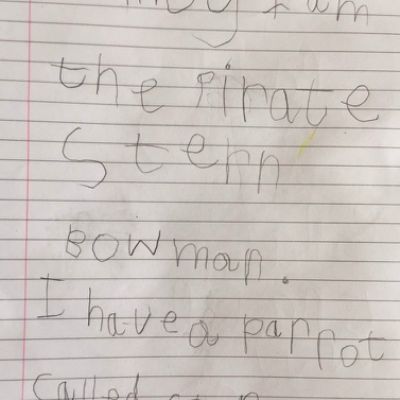 I am
the pirate
Stern
Bowman.
I have a parrot
called